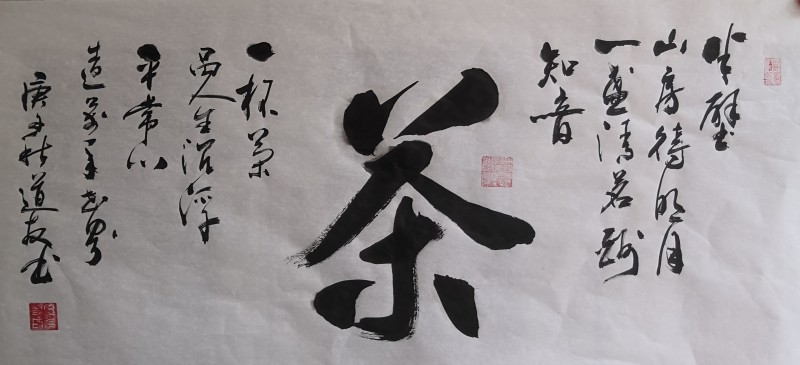 半壁
山房待明月
一盏清茗酬
知音
茶
一杯茶
品人生沉浮
平常心
造万千世界
庚子秋道友书